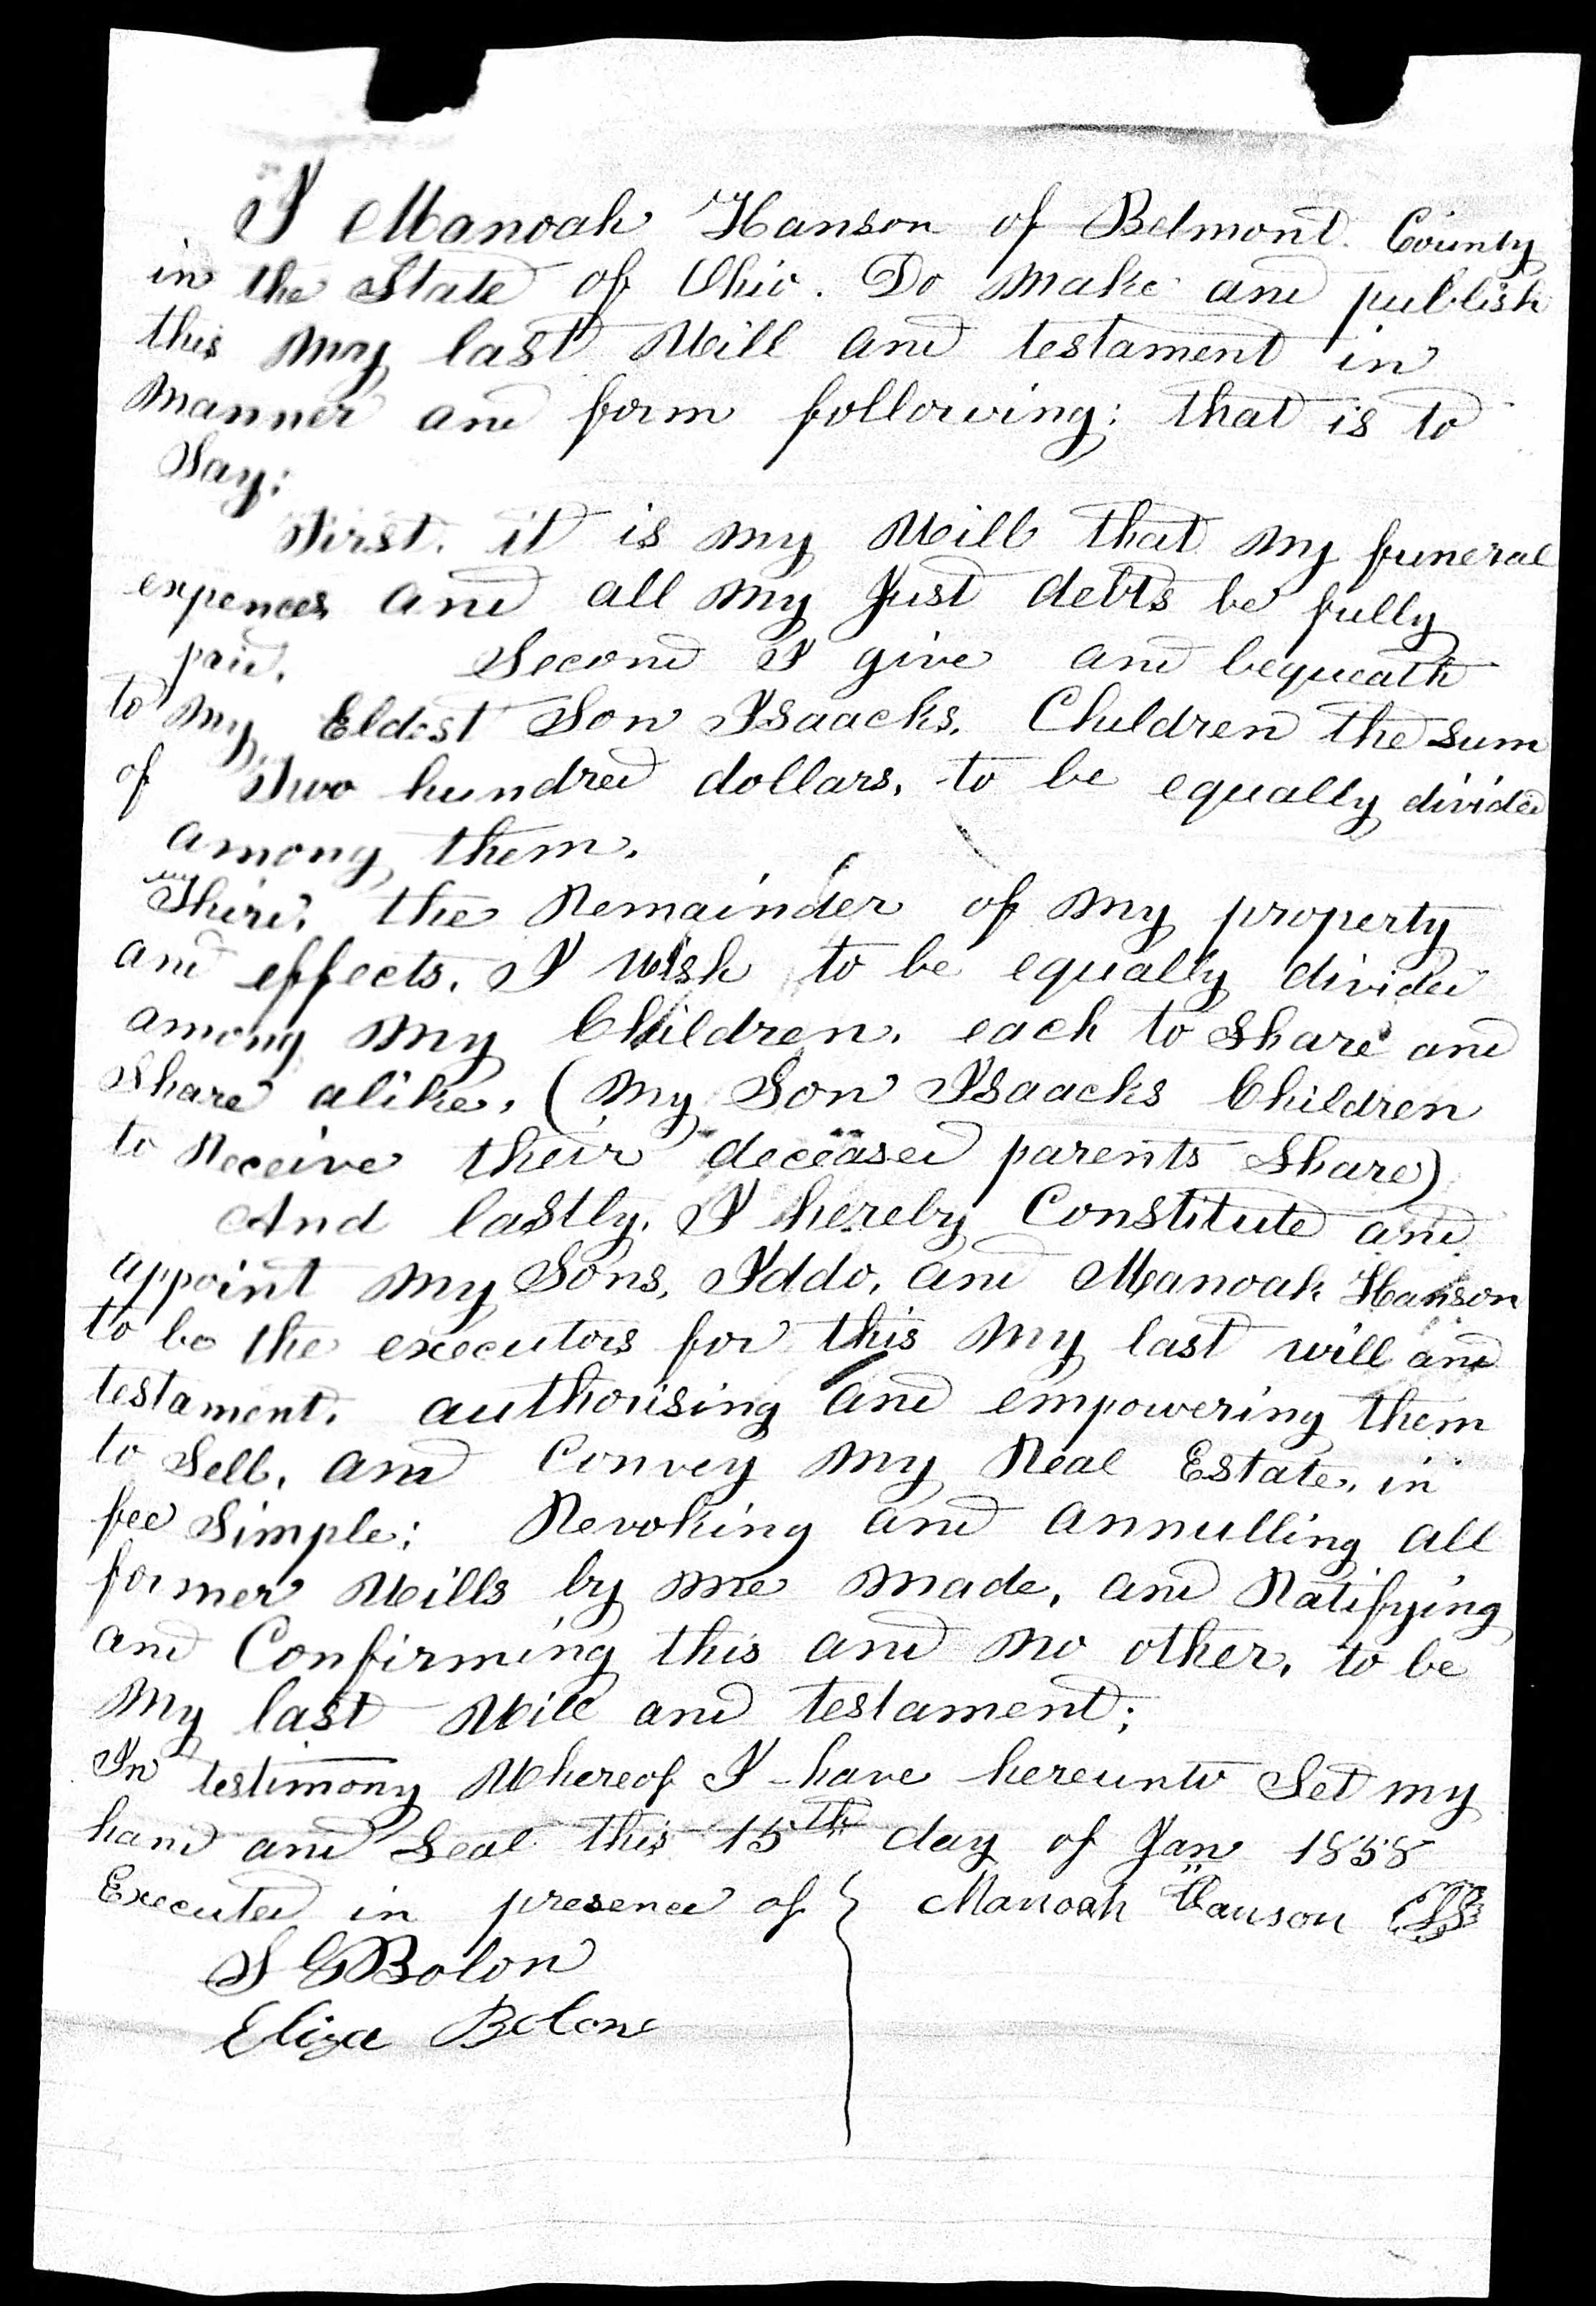 I Manoah Hanson of Belmont County
in the State of Ohio. Do make and publish
this my last Will and testament in
manner and form following; that is to
Say;
First. it is my Will that my funeral
expences and all my Just debts be fully
paid. Second I give and bequeath
to my Eldest Son Isaacks. Children the sum
of Two hundred dollars, to be equally divided
among them.
Third. the Remainder of my property
and effects. I wish to be equally divided
among my Children. each to Share and
Share alike, (my Son Isaacks Children
to Receive their deceased parents Share)
And lastly. I hereby Constitute and
appoint my Sons, Iddo, and Manoah Hanson
to be the executors for this my last will and
testament. authorising and empowering them
to Sell, and Convey my Real Estate, in
fee Simple; Revoking and annulling all
former Wills by me made, and Ratifying
and Confirming this and no other, to be
my last Will and testament;
In testimony Whereof I have hereunto Set my
hand and Seal this 15th day of Jan 1858
Executed in presence of } Manoah Hanson
S Bolon
Eliza Bolon